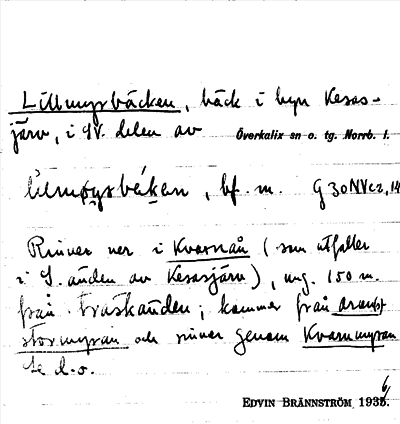 Lillmyrbäcken, bäck i byn Kesas-
järv, i SV. delen av Överkalix sn o. tg. Norrb. l.
bf. m. G30NVc2,14
Rinner ner i Kvarnån (som utfaller
i S. änden av Kesasjärv), ung. 150 m.
från träskänden; kommer från
stormyran och rinner genom Kvarnmyran
Se d.o.
EDVIN BRÄNNSTRÖM 1936